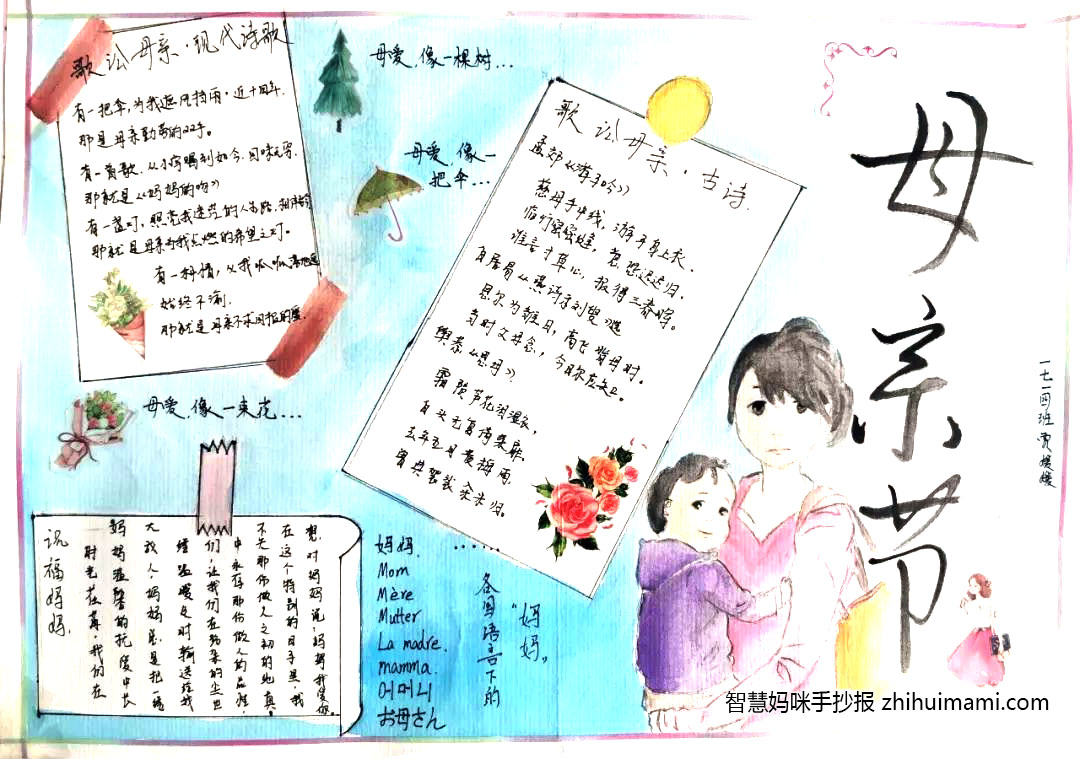 歌讼母亲·现代诗歌
有一把伞,为我遮风挡雨·近十周年.
那是母亲勤劳的双手。
有一首歌.从小害唱到如今.回味无穷.
那就是《妈妈的吻》
有一盏灯.照亮我迷茫的人生路.
那就是母亲为我点燃的希望之灯.
有一种情,从我呱呱落地
始终不渝.
那就是母亲不求回报的爱.
母爱,像一棵树...
母爱,像一
把伞...
母爱,像一束花...
歌讼母亲·古诗.
孟郊《游子吟》
慈母手中线,游子身上衣.
临行密密缝,意恐迟迟归.
谁言寸草心,报得三春晖。
白居易《燕诗示刘叟》选
思尔为雏日,高飞背母时.
当时父母念,今日尔应知。
與恭《思母》
霜陨芦花泪湿衣,
白头无复倚柴扉.
去年五月黄梅雨,
曾典袈裟籴米归.
母亲节
一七一四班 贾媛媛
想,对妈妈说:妈妈我爱你。
在这个特别的日子里,我
不失那份做人之初的纯真.
中永存那份做人的品性,
们,让我们在纷杂的尘世
缕温暖及时输送给我
大救人,妈妈总是把一缕
妈妈温馨的抚爱中长
时光荏苒,我们在
祝福妈妈.
妈妈.
Mom
Mère
Mutter
La madre.
mamma.
어머니
お母さん
......
各国语言下的
"妈妈"
智慧妈咪手抄报 zhihuimami.com